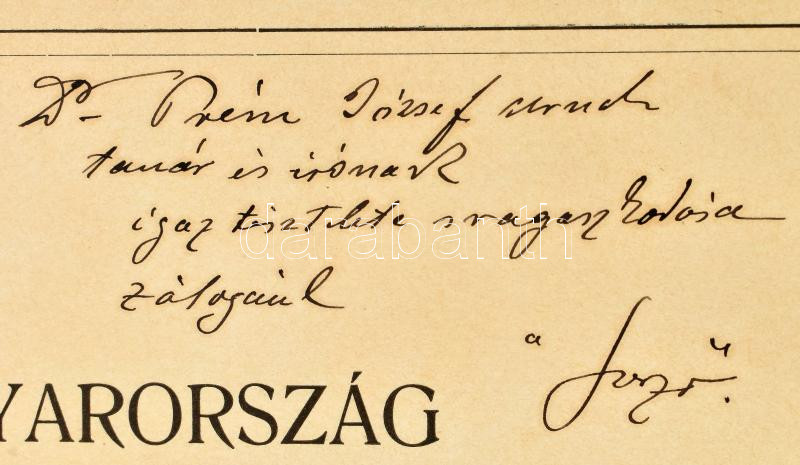 Dr Prém József urnak
tanár és irónak
igaz tisztelete s ragaszkodása
zálogául
a szerző.
YARORSZÁG
darabanth